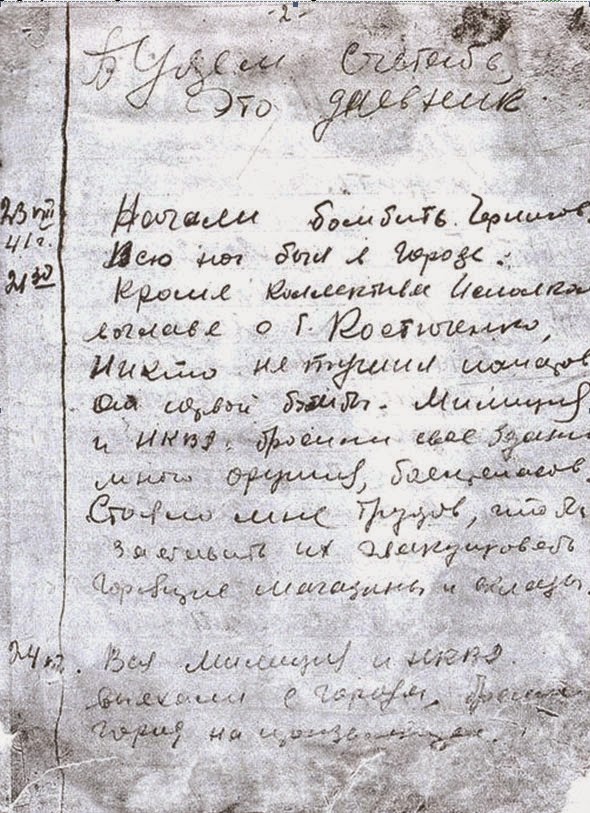 -2-
Будем считать,
Это дневник
23 VIII
41 г.
21 30
Начали бомбить Чернигов,
Всю ноч был в городе.
Кроме коллектива Исполком
во главе с т. Костюченко,
Никто не тушил пожаров
от первой бомбы. Милиция
и НКВД. бросили свое здани
много оружия, боеприпасов.
Стояло мне трудов, чтобы
заставить их эвакуировать
горящие магазины и склады.
24
Вся милиция и НКВД.
выехали с города, бросили
город на произвол